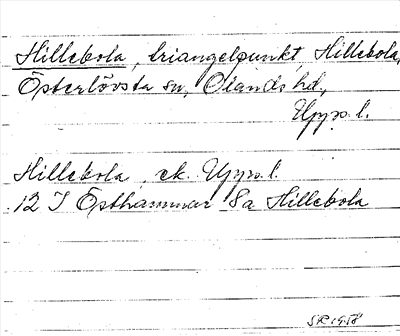 Hillebola, triangelpunkt, Hillebola,
Österlövsta sn, Olands hd,
Upps. l.
Hillebola, ek. Upps. l.
12 I Östhammar 8a Hillebola
SR 1958